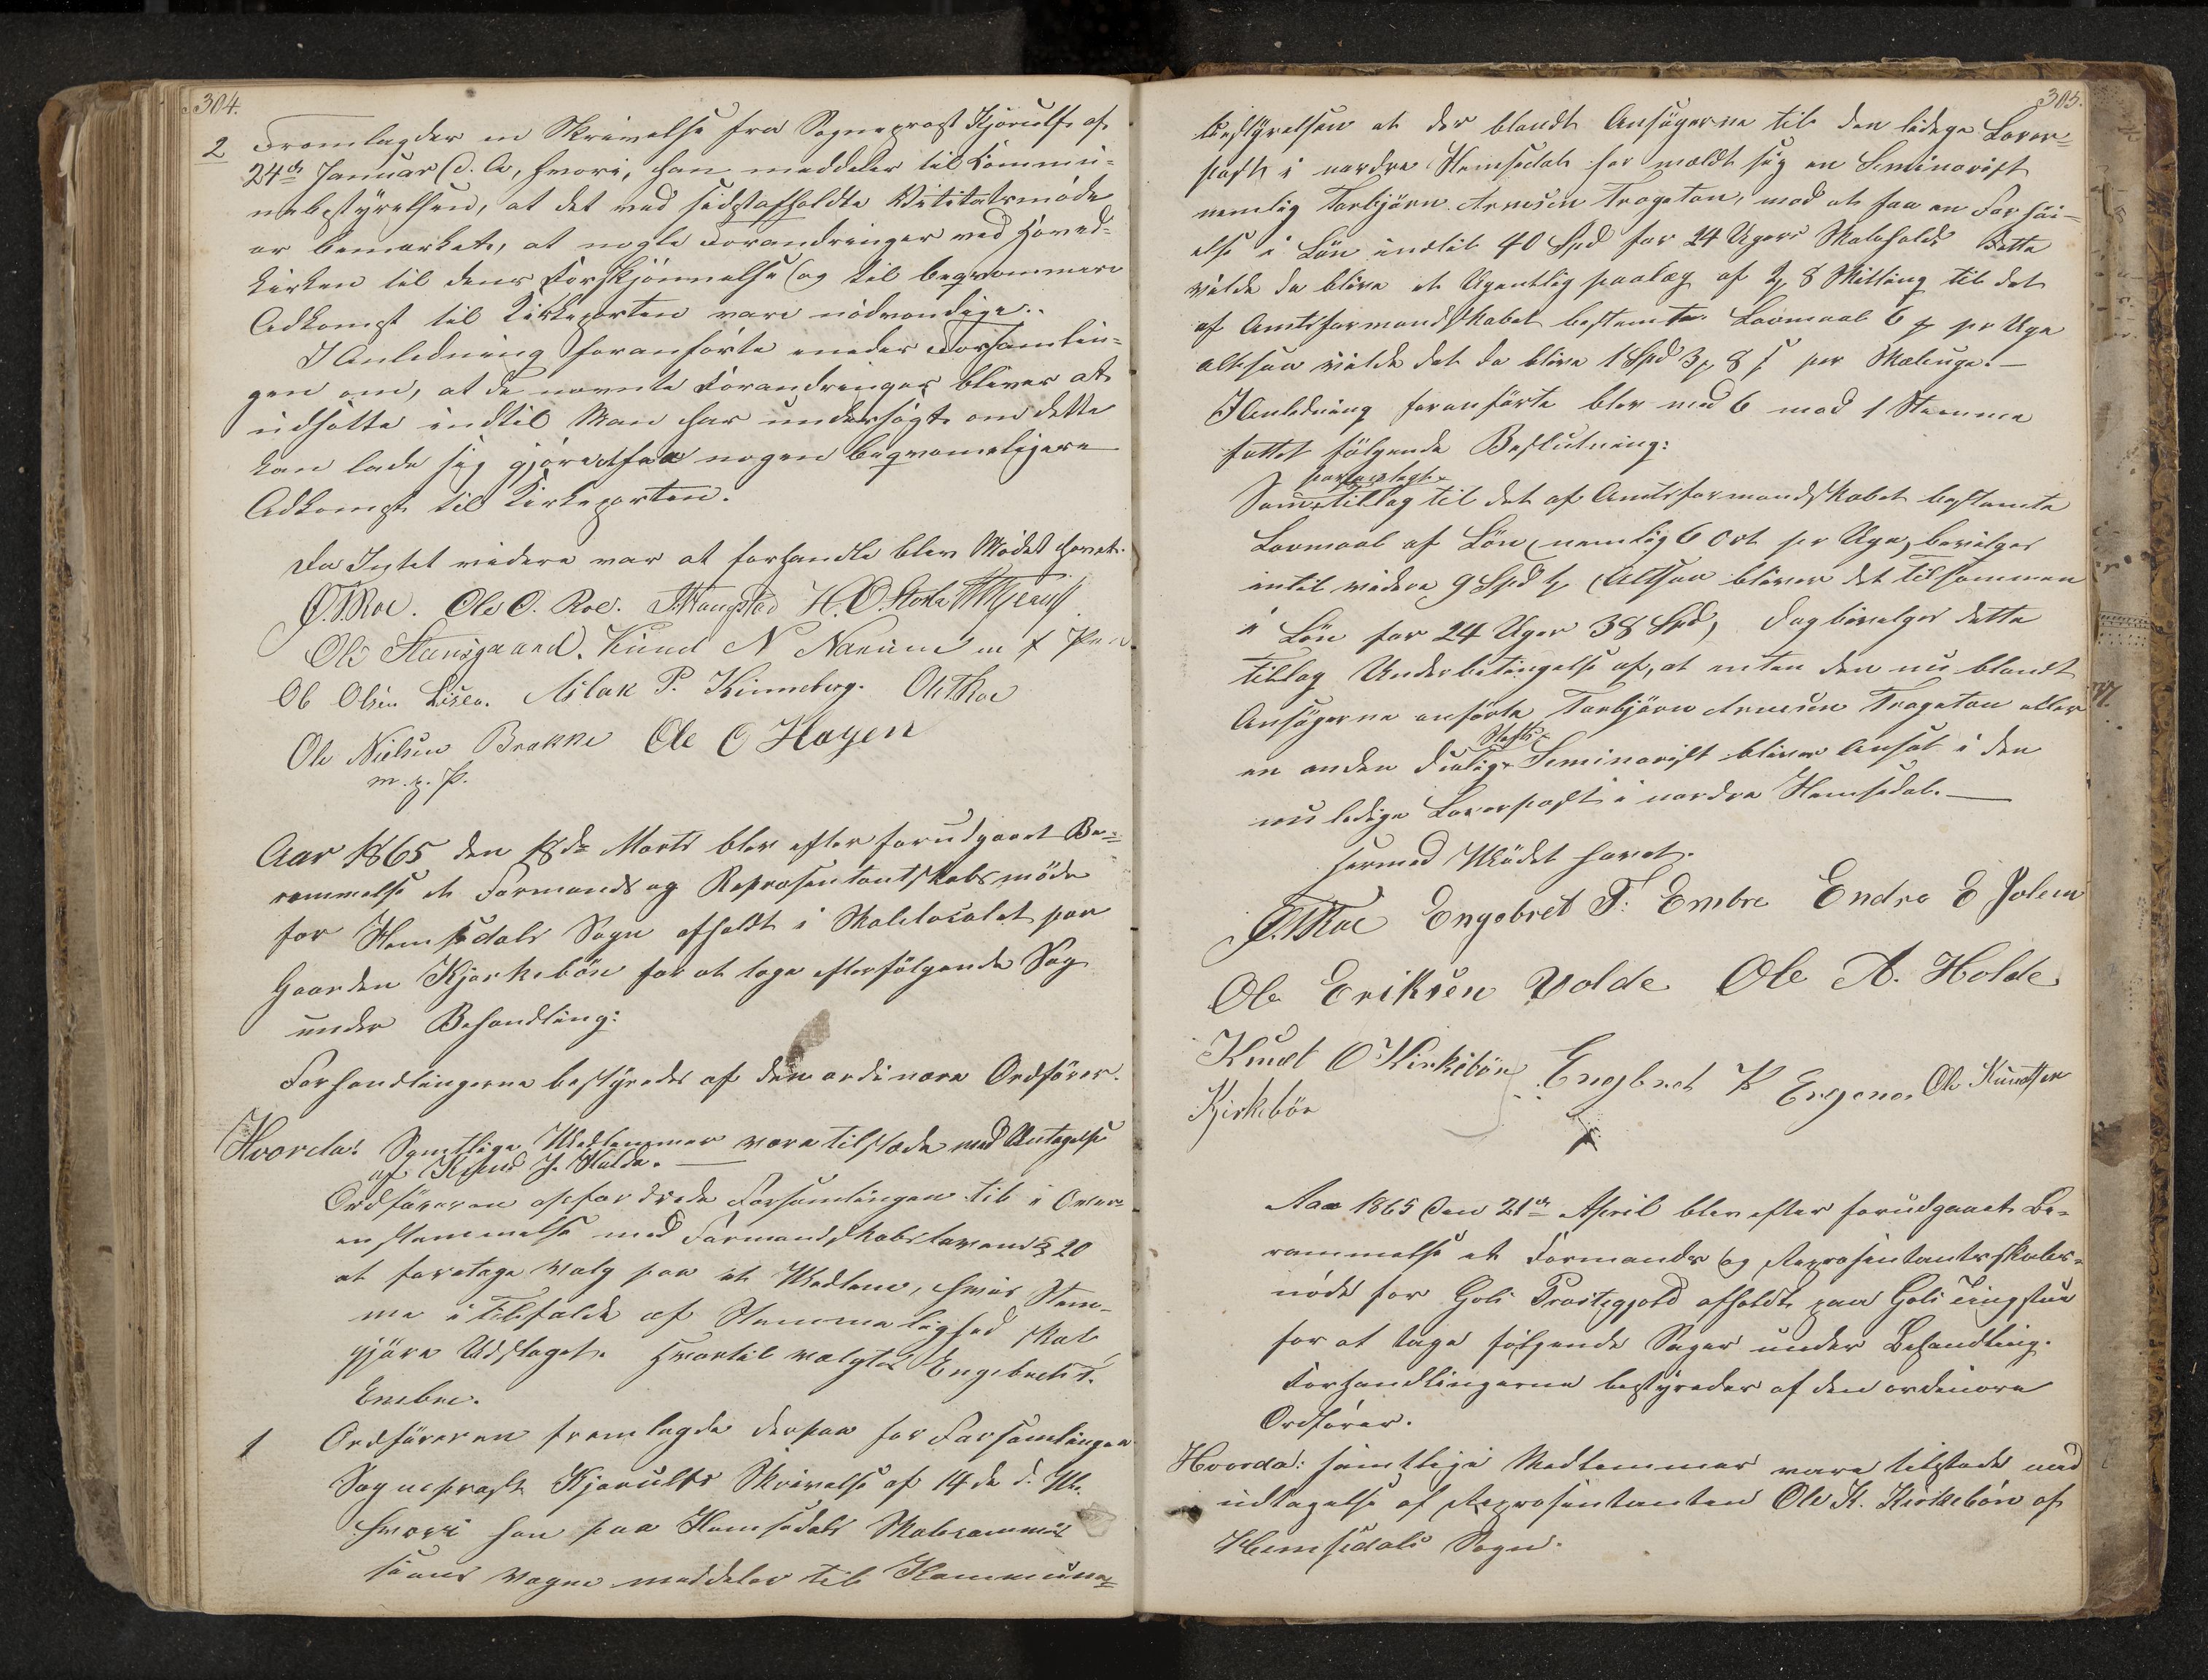 304.
2 Fremlagdes en Skrivelse fra Sogneprest Kjerulf af
24de Januar d. A, hvori, han meddeler til Kommu-
nebestyrelsen, at det ved sidstafholdte Visitatsmøde
er bemærket, at nogle Forandringer ved Hoved-
kirken til dens Forskjønnelse og til beqvemmere
Adkomst til Kirkeporten vare nødvendige.
I Anledning foranførte enedes Forsamlin-
gen om, at de nævnte Forandringer bliver at
udsætte indtil Man har undersøgt om dette
kan lade sig gjøre at faa nogen beqvemeligere
Adkomst til Kirkeporten.
Da Intet videre var at forhandle blev Mødet hævet.
O. T. Roe. Ole O. Roe. H. O. Storla
Ole Steinsgaard. Knud N Narum m f Pen
Ole Olsen Aslak P. Kinneberg. Ole T Roe
Ole Nielsen Brakke Ole O Hagen
m. p. P.
Aar 1865 den 18de Marts blev efter forudgaaet Be-
rammelse et Formands og Repræsentantskabsmøde
for Hemsedals Sogn afholdt i Skolelocalet paa
Gaarden Kjerkebøn for at tage efterfølgende Sag
under Behandling:
Forhandlingerne bestyredes af den ordinære Ordfører.
Hvorda: Samtlige Medlemmer vare tilstede med Untagelse
af Knud J. Hulde.
Ordføreren opfordrede Forsamlingen til i Over-
enstemmelse med Formandskabslovens § 20
at foretage Valg paa et Medlem, hvis Stem-
me i Tilfælde af Stemmelighed skal
gjøre Udslaget. Hvortil valgtes Engebreth T.
Embre.
1 Ordføreren fremlagde derpaa for Forsamlingen
Sogneprest Kjerulfs Skrivelse af 14de d. M.
hvori han paa Hemsedals Skolecommis
sions Vegne meddeler til Kommune-
305.
bestyrelsen at der blandt Ansøgerne til den ledige Lærer-
post i nordre Hemsedal har meldt sig en Seminarist
nemlig Torbjørn Arnesen Trageton, mod at faa en Forhøi-
else i Løn indtil 40 Spd for 24 Ugers Skolehold. Dette
vilde da blive et Ugentlig paalæg af 2 8 Skilling til det
af Amtsformandskabet bestemte Lønmaal 6 pr Uge
altsaa vilde det da blive 1 Spd 3 8 s per Skoleuge.
I Anledning foranførte blev med 6 mod 1 Stemme
fattet følgende Beslutning:
Som tillæg til det af Amtsformandskabet bestemte
Lønmaal af Løn, nemlig 6 Ort pr Uge, bevilges
intil videre 9 Spd altsaa bliver det tilsammen
i Løn for 24 Uger 38 Spd, dog bevilges dette
tillæg Underbetingelse af, at enten den nu blandt
Ansøgerne anførte Torbjørn Arnesen Trageton eller
en anden duelig Seminarist bliver Ansat i den
nu ledige Lærerpost i nordre Hemsedal.
Hermed Mødet hævet.
O. T. Roe Engebret T. Embre Endre E Jolem
Ole Eriksen Volde Ole A. Holde
Knudt O Kirkebøn Engebret K Ergene. Ole Knudtsen
Kirkebøn
Aar 1865 Den 21de April blev efter forudgaaet Be-
rammelse et Formands og Repræsentantsskabs-
møde for Gols Præstegjeld afholdt paa Gols Tingstue
for at tage følgende Sager under Behandling.
Forhandlingerne bestyredes af den ordinære
Ordfører.
Hvorda: samtlige Medlemmer vare tilstede med
udtagelse af Repræsentanten Ole K. Kirkebøn af
Hemsedals Sogn.